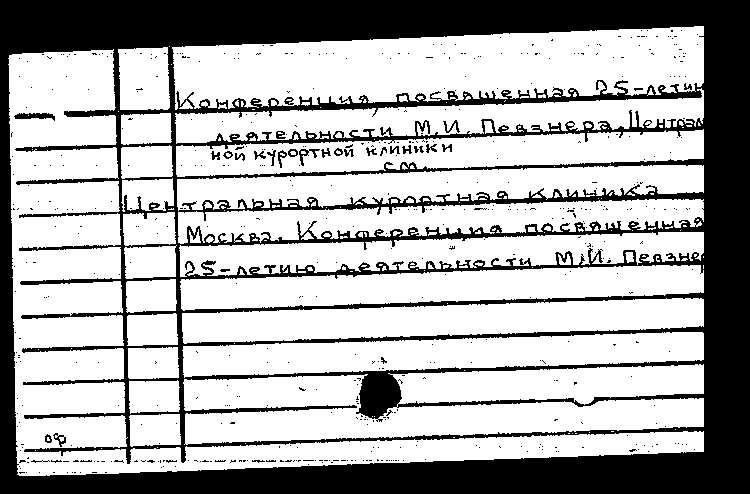 Конференция, посвященная 25-летию
деятельности М.И. Певзнера, Централ
ной курортной клиники
см.
Центральная курортная клиника
Москва. Конференция посвященная
25-летию деятельности М.И. Певзнер
ор